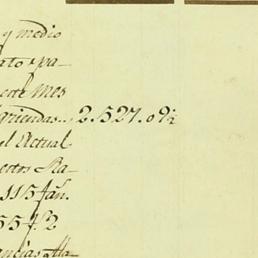 y medio
ato pa-
este mes
griendas... 2.527.09½
el Actual
ectos Ra-
115 fan.
55 f. 2
encias Ala-